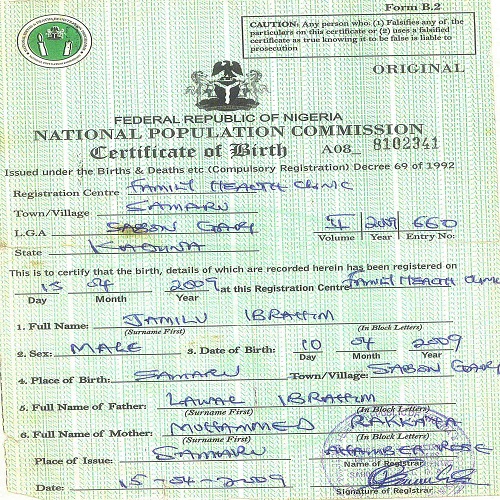 Form B.2
CAUTION: Any person who: (1) Falsifies any of the
particulars on this certificate or (2) uses a falsified
certificate as true knowing it to be false is liable to
prosecution
ORIGINAL
FEDERAL REPUBLIC OF NIGERIA
NATIONAL POPULATION COMMISSION
Certificate of Birth A08_ 8102341
Issued under the Births & Deaths etc (Compulsory Registration) Decree 69 of 1992
Registration Centre FAMILY HEALTH CLINIC
Town/Village SAMARU
L.G.A SABON GARI II 2009 660
State KADUNA Volume Year Entry No:
This is to certify that the birth, details of which are recorded herein has been registered on
15 04 2009 at this Registration Centre FAMILY HEALTH CLINIC
Day Month Year
1. Full Name: JAMILU IBRAHIM
(Surname First) (In Block Letters)
2. Sex: MALE 3. Date of Birth: 10 04 2009
Day Month Year
4. Place of Birth: SAMARU Town/Village: SABON GARI
5. Full Name of Father: LAWAL IBRAHIM
(Surname First) (In Block Letters)
6. Full Name of Mother: MOHAMMED
(Surname First) (In Block Letters)
Place of Issue: SAMARU
Name of Registrar
Date: 15-04-2009
Signature of Registrar